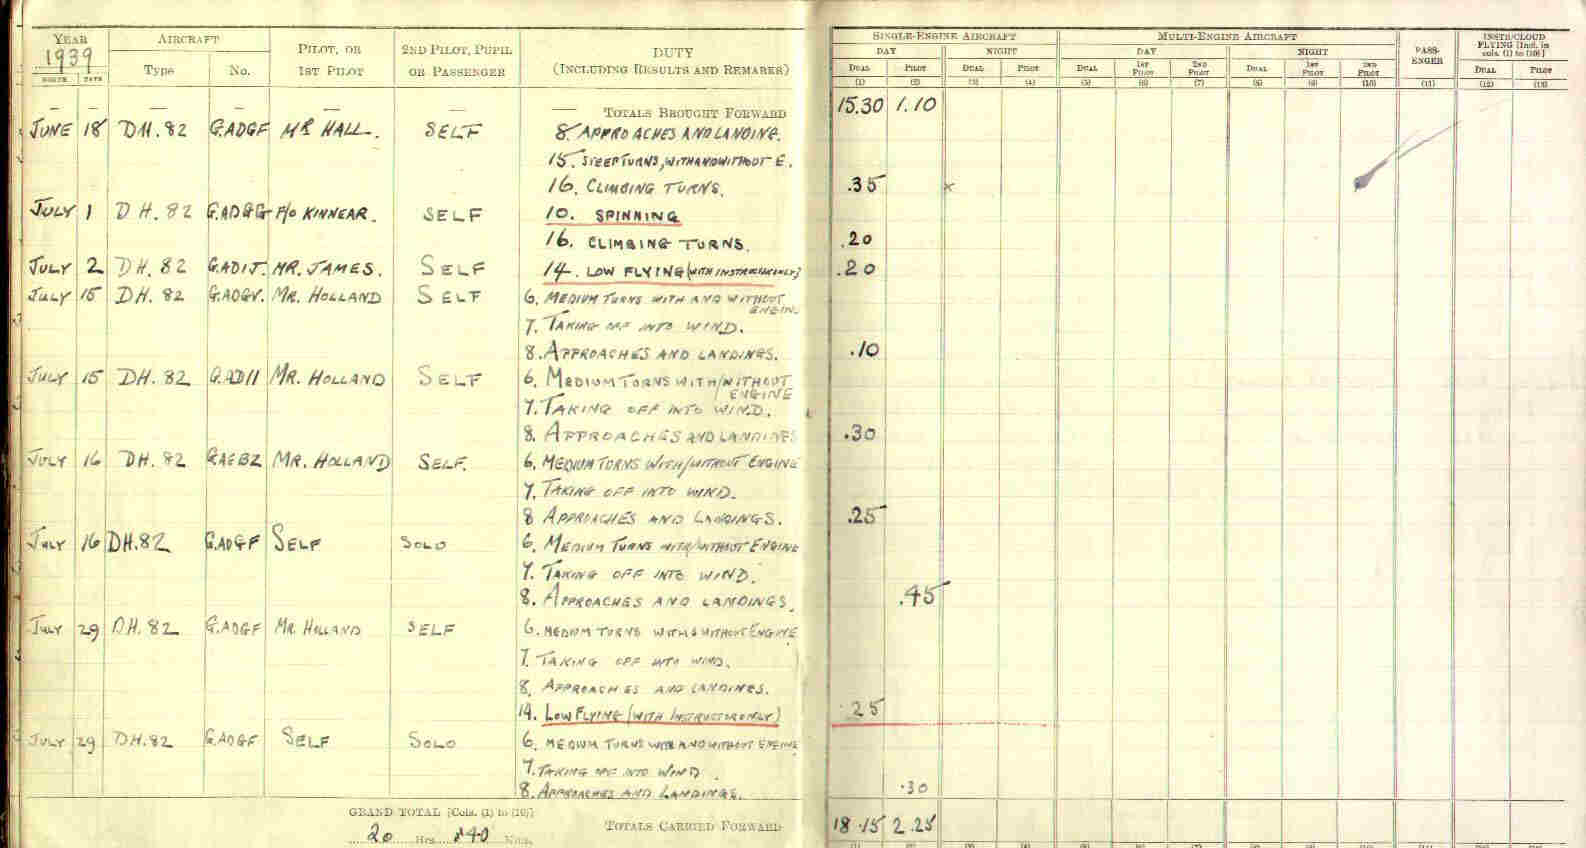 YEAR AIRCRAFT PILOT, OR 2ND PILOT, PUPIL DUTY SINGLE-ENGINE AIRCRAFT MULTI-ENGINE AIRCRAFT PASS- INSTR/CLOUD
1939 1ST PILOT OR PASSENGER (INCLUDING RESULTS AND REMARKS) DAY NIGHT DAY NIGHT ENGER FLYING [Incl. in
cols. (1) to (10)]
MONTH DATE Type No. DUAL PILOT DUAL PILOT DUAL 1ST PILOT 2ND PILOT DUAL 1ST PILOT 2ND PILOT DUAL PILOT
(1) (2) (3) (4) (5) (6) (7) (8) (9) (10) (11) (12) (13)
— — — — — — — TOTALS BROUGHT FORWARD 15.30 1.10
JUNE 18 DH.82 G.ADGF MR HALL. SELF 8. APPROACHES AND LANDING.
15. STEEP TURNS, WITH AND WITHOUT E.
16. CLIMBING TURNS. .35 x
JULY 1 DH.82 G.ADGG F/O KINNEAR. SELF 10. SPINNING
16. CLIMBING TURNS. .20
JULY 2 DH.82 G.ADIJ. MR. JAMES. SELF 14. LOW FLYING (WITH INSTRUCTOR ONLY) .20
JULY 15 DH.82 G.ADGV. MR. HOLLAND SELF 6. MEDIUM TURNS WITH AND WITHOUT
ENGIN.
7. TAKING OFF INTO WIND.
8. APPROACHES AND LANDINGS. .10
JULY 15 DH.82 G.ADII MR. HOLLAND SELF 6. MEDIUM TURNS WITH/WITHOUT
ENGINE
7. TAKING OFF INTO WIND.
8. APPROACHES AND LANDINGS .30
JULY 16 DH.82 G.AEBZ MR. HOLLAND SELF. 6. MEDIUM TURNS WITH/WITHOUT ENGINE
7. TAKING OFF INTO WIND.
8 APPROACHES AND LANDINGS. .25
JULY 16 DH.82 G.ADGF SELF SOLO 6. MEDIUM TURNS WITH/WITHOUT ENGINE
7. TAKING OFF INTO WIND.
8. APPROACHES AND LANDINGS. .45
JULY 29 DH.82 G.ADGF MR. HOLLAND SELF 6. MEDIUM TURNS WITH & WITHOUT ENGINE
7. TAKING OFF INTO WIND.
8. APPROACHES AND LANDINGS.
14. LOW FLYING (WITH INSTRUCTOR ONLY) .25
JULY 29 DH.82 G.ADGF SELF SOLO 6. MEDIUM TURNS WITH AND WITHOUT ENGINE
7. TAKING OFF INTO WIND.
8. APPROACHES AND LANDINGS. .30
GRAND TOTAL [Cols. (1) to (10)] TOTALS CARRIED FORWARD 18.15 2.25
20 Hrs. 40 Mins.